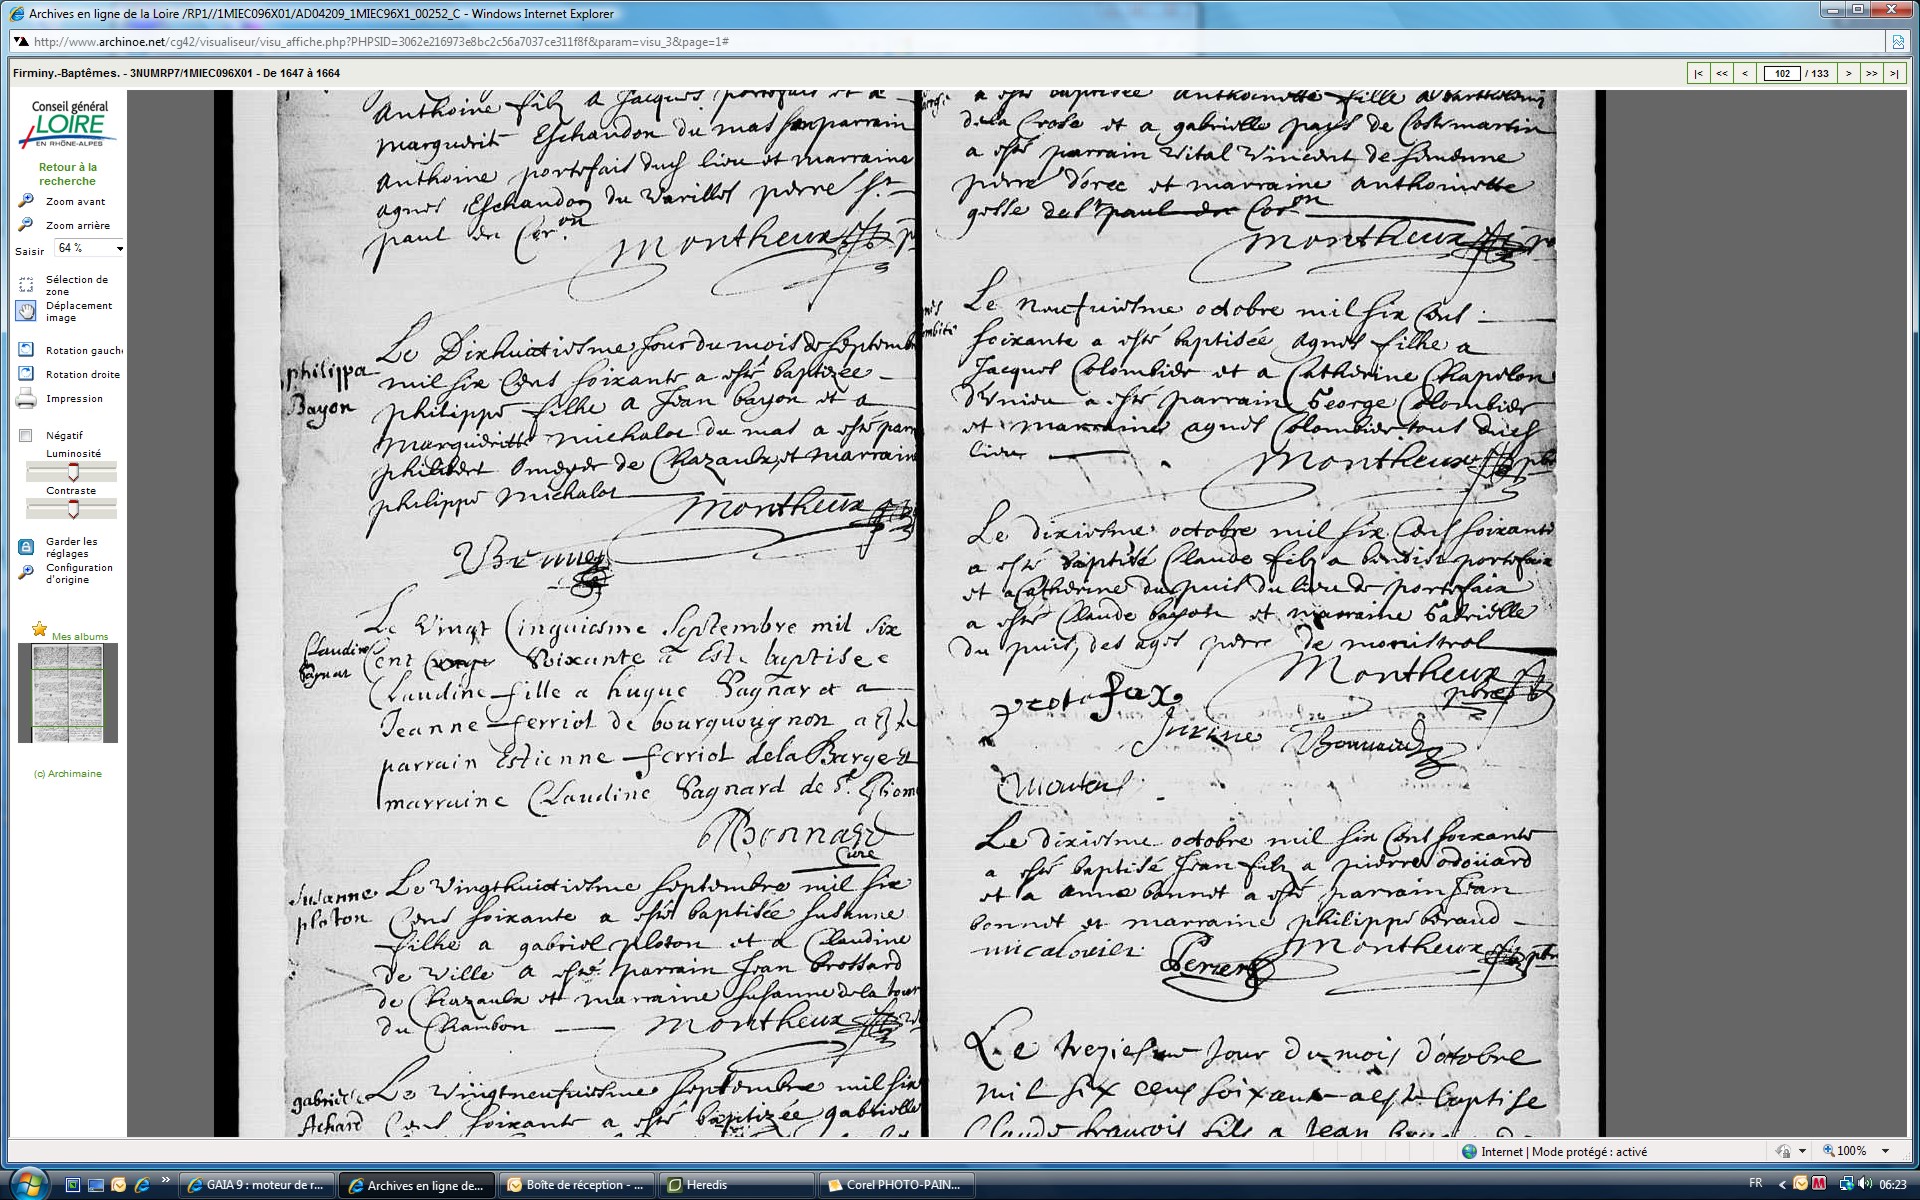 Archives en ligne de la Loire /RP1//1MIEC096X01/AD04209_1MIEC96X1_00252_C - Windows Internet Explorer
http://www.archinoe.net/cg42/visualiseur/visu_affiche.php?PHPSID=3062e216973e8bc2c56a7037ce311f8f&param=visu_3&page=1#
Firminy.-Baptêmes. - 3NUMRP7/1MIEC096X01 - De 1647 à 1664
|< << < 102 / 133 > >> >|
Conseil général
LOIRE
EN RHÔNE-ALPES
Retour à la
recherche
Zoom avant
Zoom arrière
Saisir 64 %
Sélection de
zone
Déplacement
image
Rotation gauch
Rotation droite
Impression
Négatif
Luminosité
Contraste
Garder les
réglages
Configuration
d'origine
Mes albums
(c) Archimaine
Anthoine filz a Jacques portefais et a
marguerit Eschandon du mas parrain
Anthoine portefais dud lieu et marraine
agnes Eschandon du Varilles pierre St
paul en Cor.on
Montheux
philippa
Bayon
Le Dixhuictiesme Jour du mois de septemb
mil six Cens soixante a esté baptizee
philippe filhe a Jean bayon et a
Margueritte michalot du mas a esté parr
philibert de Chazaulx et marrain
philippe Michalot
Montheux
Claudine
Pagnat
Le Vingt Cinquiesme Septembre mil six
Cent Soixante a Esté baptisee
Claudine fille a hugue Pagnat et a
Jeanne ferriol de bourguougnon a Esté
parrain Estienne ferriol dela Barge et
marraine Claudine Pagnard de St.
Bonnard
Curé
Susanne
ploton
Le Vingthuictiesme septembre mil six
Cens soixante a esté baptisée susanne
filhe a gabriel ploton et a Claudine
de Ville a esté parrain Jean brossard
de Chazaulx et marraine susanne dela tour
du Chambon Montheux
gabrielle
Achard
Le Vingtneufuiesme septembre mil six
Cens soixante a esté baptizée gabrielle
a esté baptisée Anthoinette fille a
dela Crose et a gabrielle pays de Costemartin
a esté parrain Vital Vincent de
pierre d'orec et marraine Anthoinette
gesse de St paul en Cor.on
Montheux
Le Neufuiesme octobre mil six Cens
soixante a esté baptisée Agnes filhe a
Jacques Colombier et a Catherine Chapelon
d'Vnieu a esté parrain George Colombier
et marraine agnes Colombier tous dud
lieu
Montheux
Le dixiesme octobre mil six Cens soixante
a esté baptisé Claude filz a portefaix
et a Catherine du puis du lieu de portefaix
a esté Claude et marraine Gabrielle
du puis, des ages pierre de monistrol
Montheux
pbre
portefax
Jurine
Le dixiesme octobre mil six Cent soixante
a esté baptisé Jean filz a pierre odoüard
et a anne bonnet a esté parrain Jean
bonnet et marraine philippe beraud
Montheux
Le treziesme Jour du mois d'octobre
mil six cens soixante a esté baptise
Claude francois fils a Jean
Internet | Mode protégé : activé
100%
GAIA 9 : moteur de r...
Archives en ligne de...
Boîte de réception - ...
Heredis
Corel PHOTO-PAIN...
FR
06:23